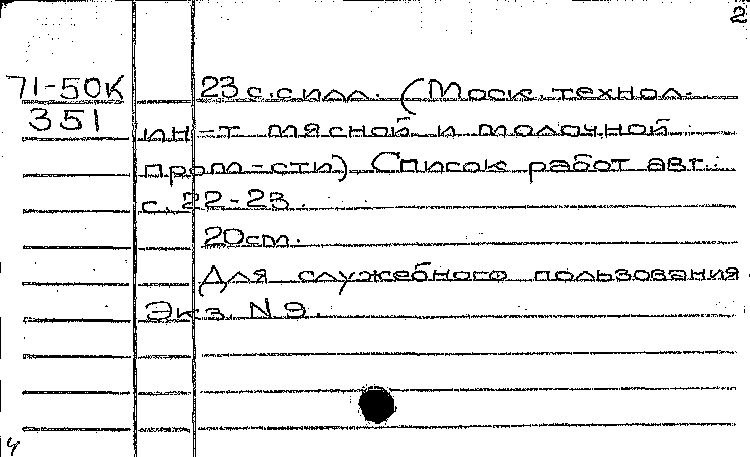 2
71-50К 23 с. силл. (Моск. технол.
351
ин-т мясной и молочной
пром-сти) Список работ авт.:
с. 22-23.
20см.
Для служебного пользования
Экз. N 9.
4